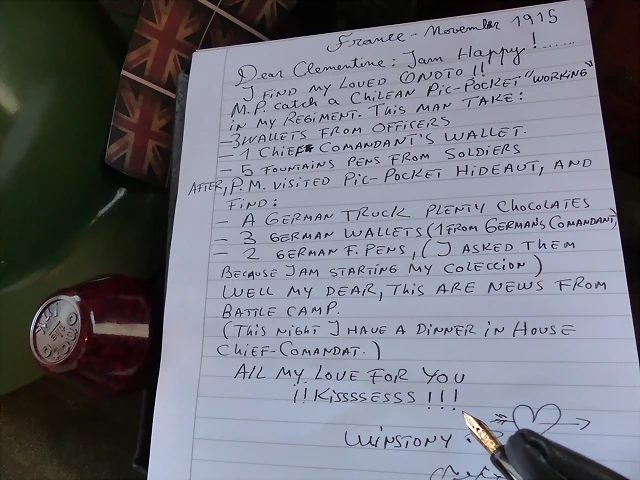 France - November 1915
Dear Clementine: Jam Happy!......
I FIND MY LOVED ONOTO!!
M.P. CATCH A CHILEAN PIC-POCKET "WORKING"
IN MY REGIMENT. THIS MAN TAKE:
- 3 WALLETS FROM OFFICERS
- 1 CHIEF COMANDANT'S WALLET.
- 5 FOUNTAINS PENS FROM SOLDIERS
AFTER, P.M. VISITED PIC-POCKET HIDEAUT, AND
FIND:
- A GERMAN TRUCK PLENTY CHOCOLATES
- 3 GERMAN WALLETS (1 FROM GERMANS COMANDANT)
- 2 GERMAN F. PENS, (J ASKED THEM
BECAUSE JAM STARTING MY COLECCION)
WELL MY DEAR, THIS ARE NEWS FROM
BATTLE CAMP.
(THIS NIGHT J HAVE A DINNER IN HOUSE
CHIEF-COMANDAT.)
ALL MY LOVE FOR YOU
!!KISSSSESSS !!!
WINSTONY